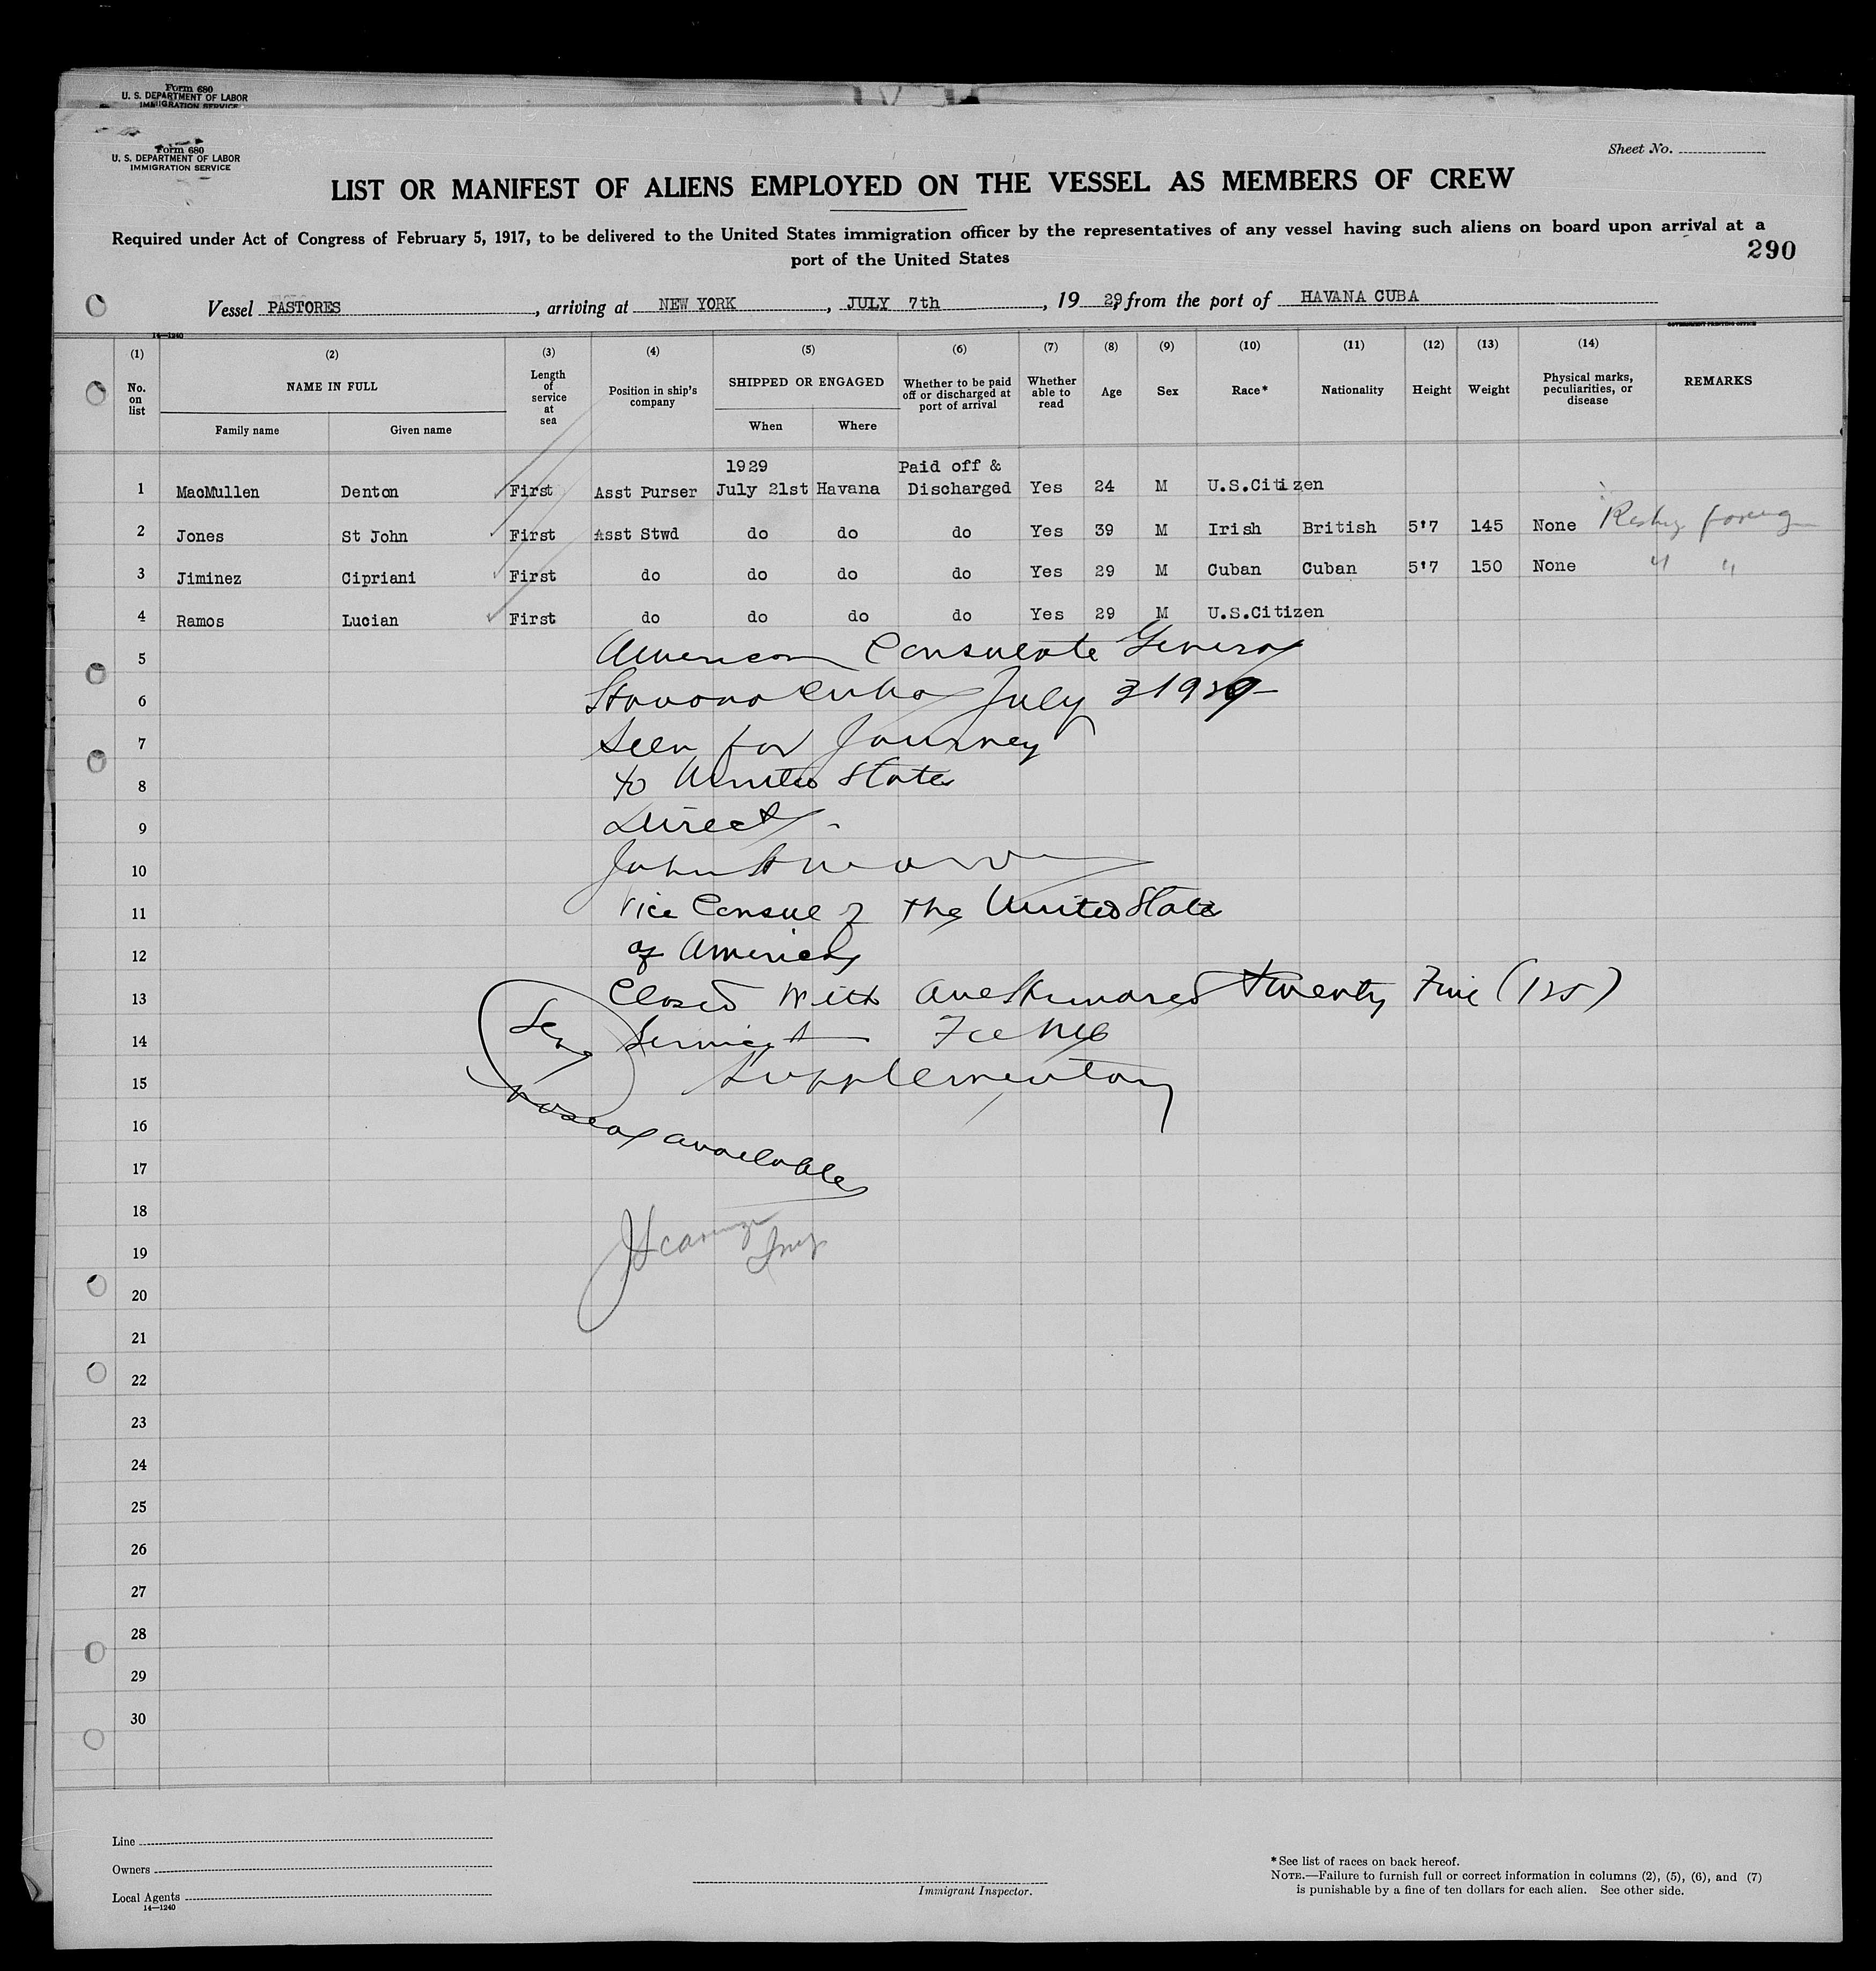 Form 680
U. S. DEPARTMENT OF LABOR
IMMIGRATION SERVICE
Form 680
U. S. DEPARTMENT OF LABOR
IMMIGRATION SERVICE
Sheet No.
LIST OR MANIFEST OF ALIENS EMPLOYED ON THE VESSEL AS MEMBERS OF CREW
Required under Act of Congress of February 5, 1917, to be delivered to the United States immigration officer by the representatives of any vessel having such aliens on board upon arrival at a
port of the United States
290
Vessel PASTORES, arriving at NEW YORK, JULY 7th, 19 29, from the port of HAVANA CUBA
14—1240
GOVERNMENT PRINTING OFFICE
(1) (2) (3) (4) (5) (6) (7) (8) (9) (10) (11) (12) (13) (14)
No. on list NAME IN FULL Length of service at sea Position in ship's company SHIPPED OR ENGAGED Whether to be paid off or discharged at port of arrival Whether able to read Age Sex Race* Nationality Height Weight Physical marks, peculiarities, or disease REMARKS
Family name Given name When Where
1929 Paid off &
1 MacMullen Denton First Asst Purser July 21st Havana Discharged Yes 24 M U.S.Citizen
2 Jones St John First Asst Stwd do do do Yes 39 M Irish British 5'7 145 None
3 Jiminez Cipriani First do do do do Yes 29 M Cuban Cuban 5'7 150 None " "
4 Ramos Lucian First do do do do Yes 29 M U.S.Citizen
5 American Consulate General
6 Havana Cuba July 3 1929
7 Seen for Journey
8 to United States
9 Direct.
10 John
11 Vice Consul of the United States
12 of America
13 Closed with One Hundred Twenty Five (125)
14 Seal Service Fee No
15 Supplementary
16 available
17
18
19
20
21
22
23
24
25
26
27
28
29
30
Line
Owners
Local Agents
14—1240
Immigrant Inspector.
*See list of races on back hereof.
NOTE.—Failure to furnish full or correct information in columns (2), (5), (6), and (7)
is punishable by a fine of ten dollars for each alien. See other side.